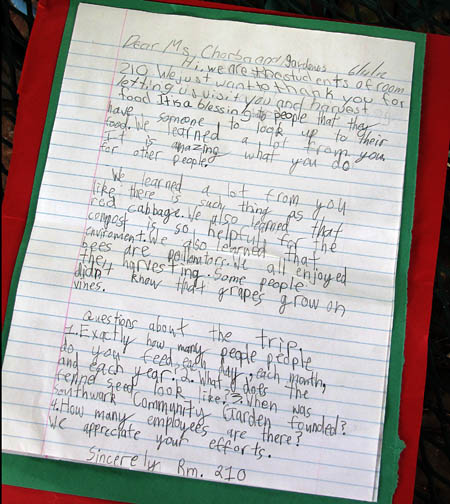 Dear Ms. Charba and gardeners 6/11/12
Hi, we are the students of room
210. We just want to thank you for
letting us visit you and harvest
food. It is a blessing to people that they
have someone to look up to their
food. We learned a lot from you.
It is amazing what you do
for other people.
We learned a lot from you
like there is such thing as
red cabbage. We also learned that
compost is so helpful for the
enviroment. We also learned that
bees are pollonators. We all enjoyed
the harvesting. Some people
didn't know that grapes grow on
vines.
Questions about the trip.
1. Exactly how many people people
do you feed each day, each month,
and each year? 2. What does the
fennd seed look like? 3. When was
Southwark Community Garden founded?
4. How many employees are there?
We appreciate your efforts.
Sincerely Rm. 210